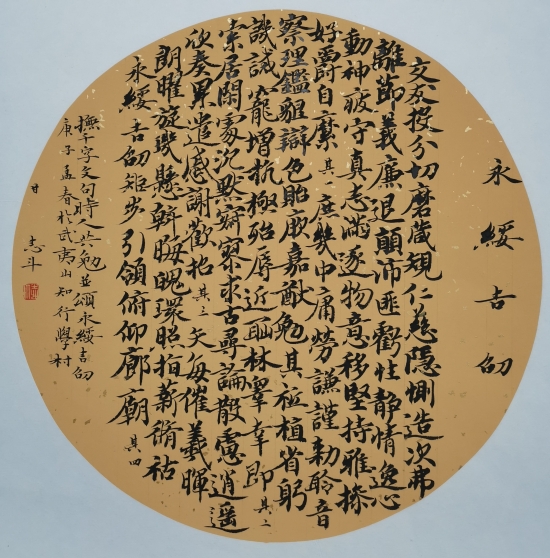 永綏吉劭
交友投分切磨箴規仁慈隱惻造次弗
離節義廉退顛沛匪虧性靜情逸心
動神疲守真志滿逐物意移堅持雅操
好爵自縻 其一 庶幾中庸勞謙謹勅聆音
察理鑑貌辯色貽厥嘉猷勉其祗植省躬
譏誡寵增抗極殆辱近恥林皋幸即 其二
索居閑處沉默寂寥求古尋論散慮逍遙
欣奏累遣慼謝歡招 其三 矢每催羲暉
朗曜旋璣懸斡晦魄環照指薪脩祜
永綏吉劭矩步引領俯仰廊廟 其四
千字文句時人共勉並頌永綏吉劭
庚子孟春於武夷山知行學村
甘 志斗